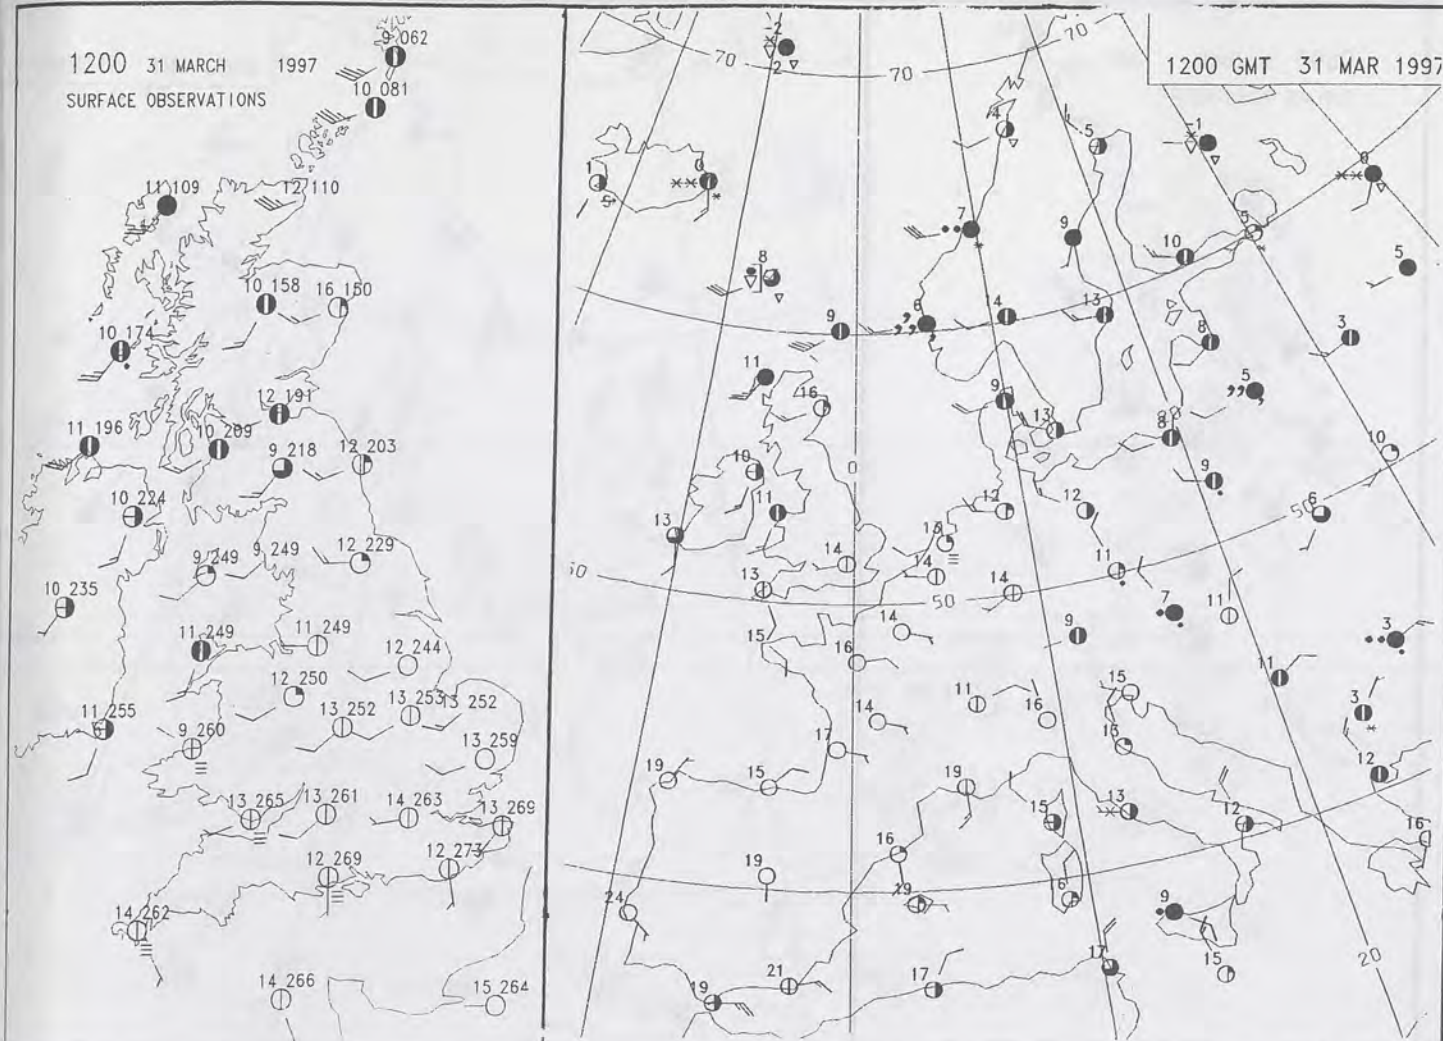 1200 31 MARCH 1997
SURFACE OBSERVATIONS
9 062
10 081
11 109
12 110
10 158
16 150
10 174
12 191
11 196
10 209
9 218
12 203
10 224
9 249
9 249
12 229
10 235
11 249
11 249
12 244
12 250
11 255
13 252
13 253
13 252
9 260
13 259
13 265
13 261
14 263
13 269
12 269
12 273
14 262
14 266
15 264
1200 GMT 31 MAR 1997
-2
2
70
70
70
4
5
-1
0
1
0
7
9
10
5
5
8
9
6
14
13
8
3
11
16
9
13
8
5
10
10
0
11
9
13
12
12
6
50
13
14
13
14
11
50
14
50
7
11
3
14
9
15
16
11
11
16
15
3
14
17
13
12
19
15
19
15
13
12
16
16
19
24
19
16
9
17
15
20
21
17
19